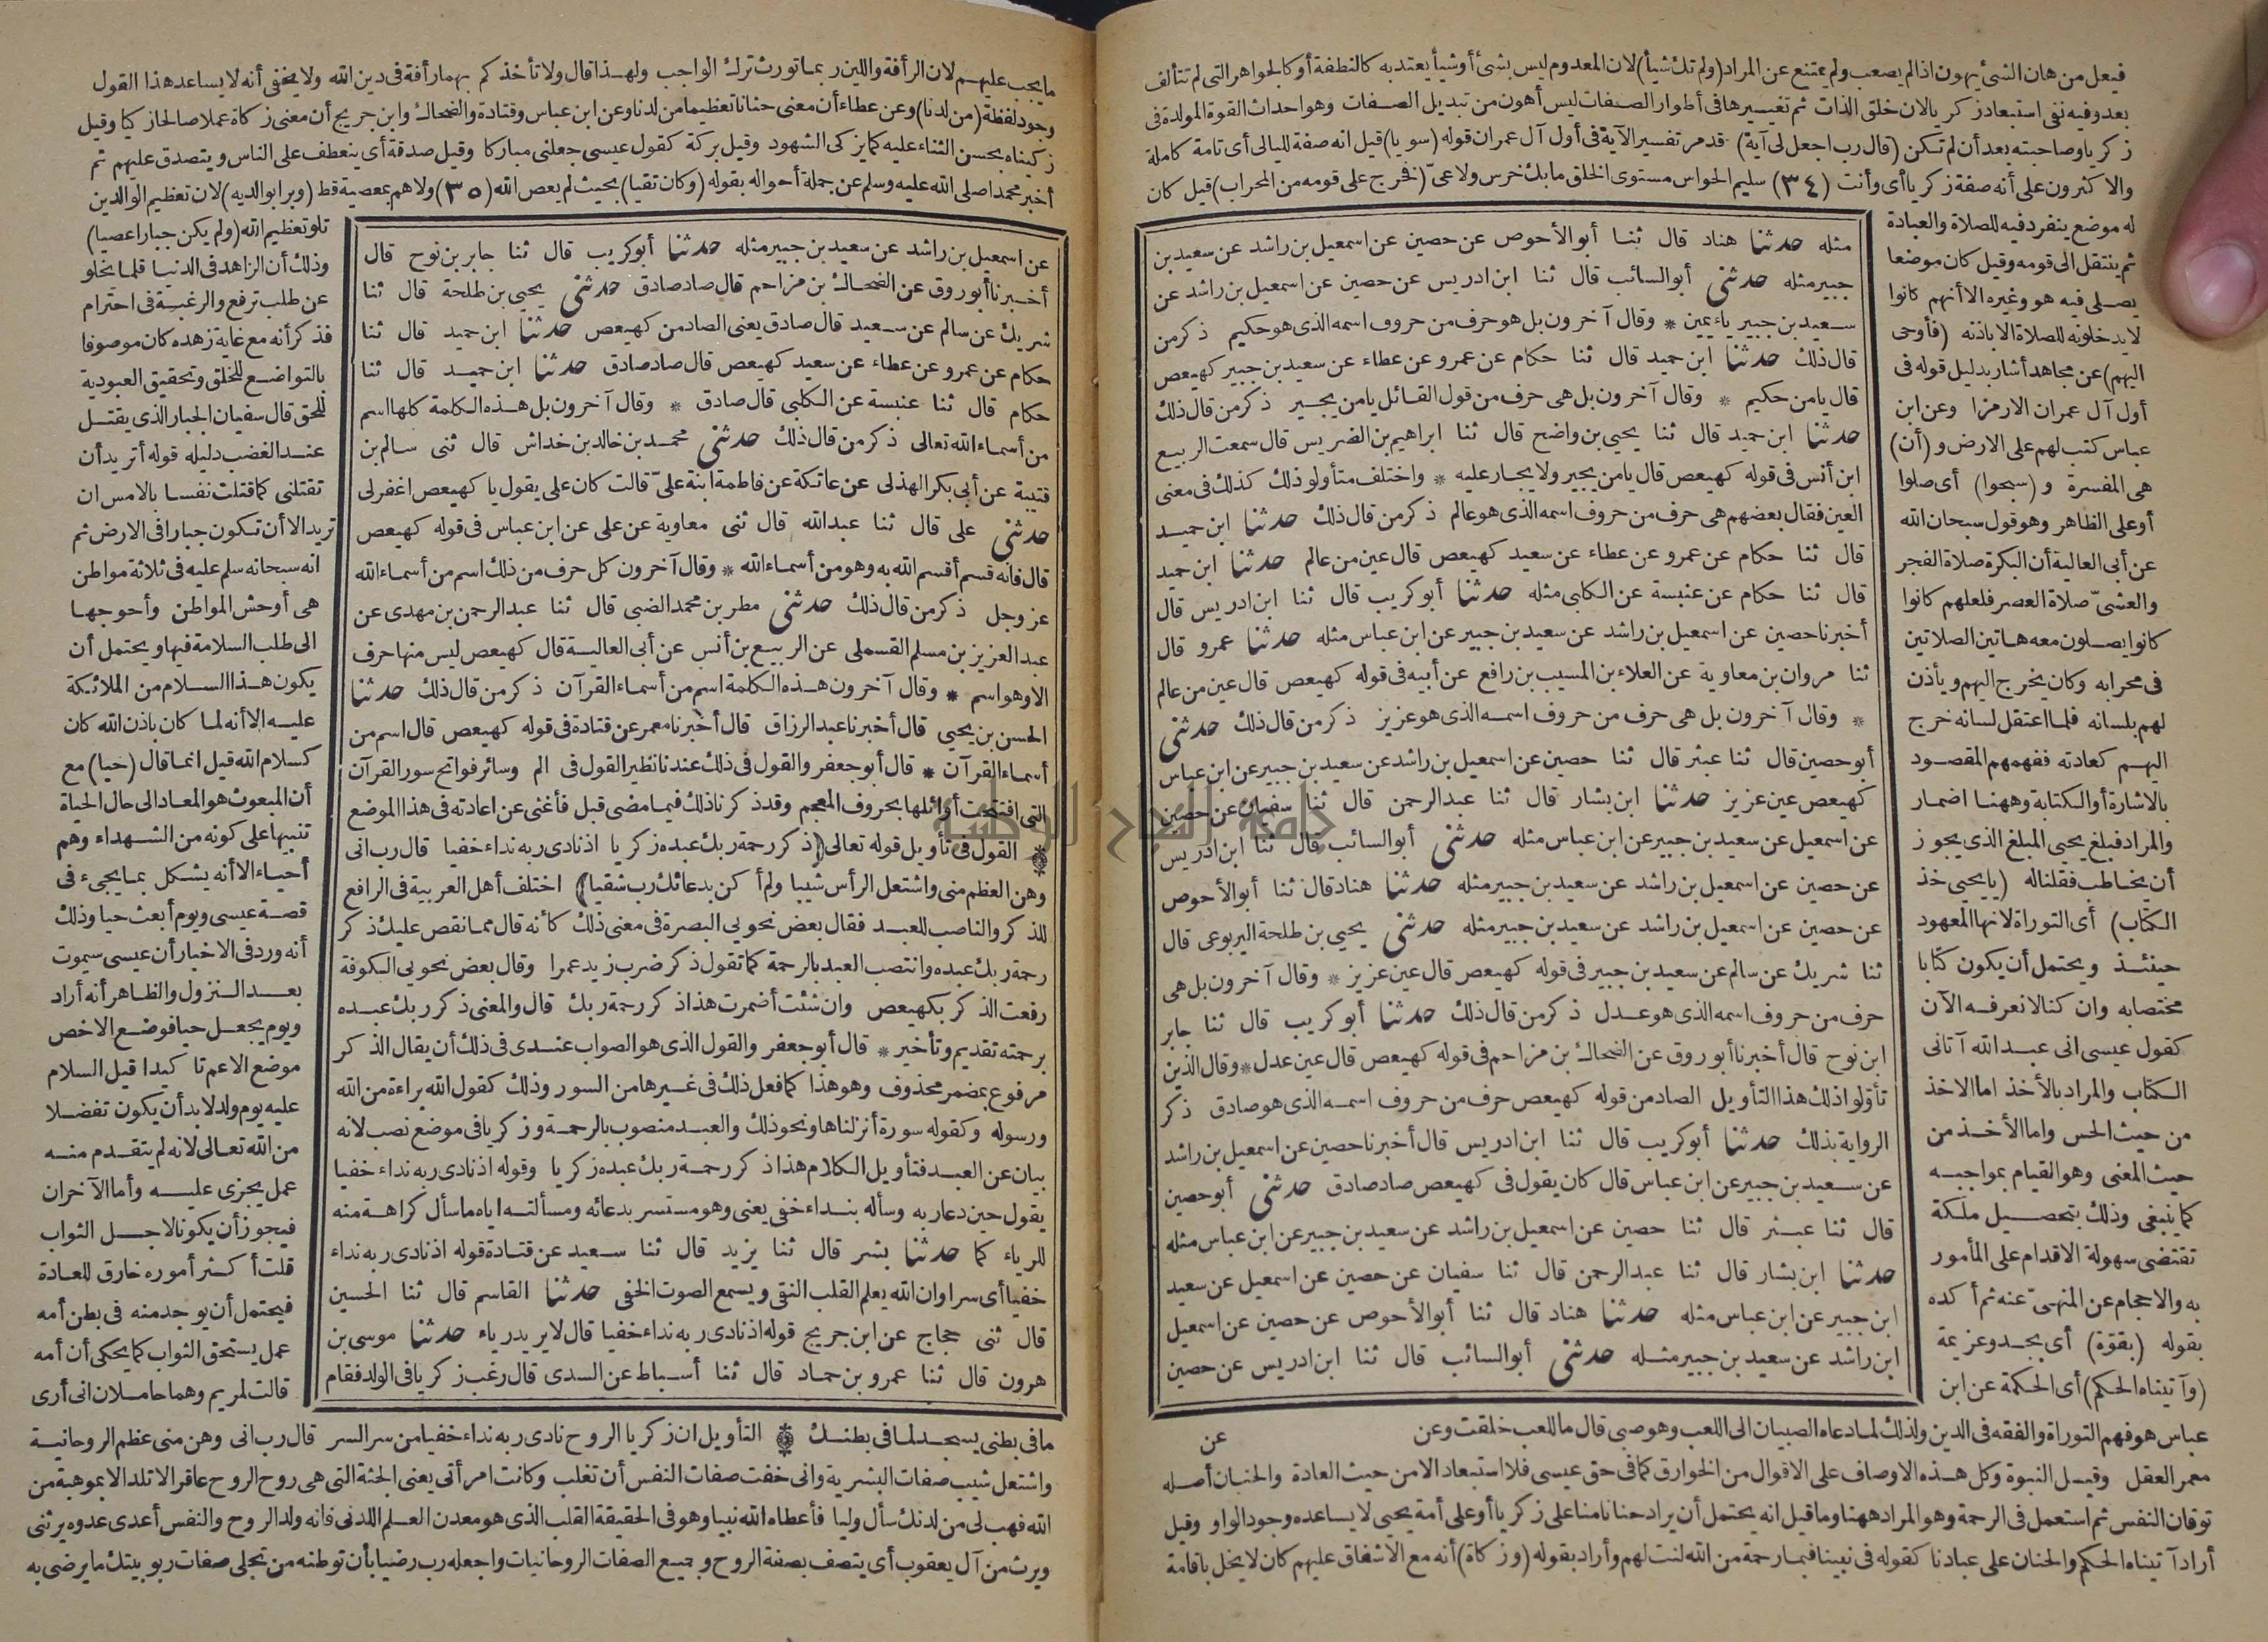 فيعل من هان الشئ يهون اذا لم يصعب ولم يمتنع عن المراد (ولم تك شيأ) لان المعدوم ليس بشئ أو شيأ يعتد به كالنطفة أو كالجواهر التى لم تتألف
بعد وفيه نفى استبعاد زكريا لان خلق الذات ثم تغييرها فى أطوار الصفات ليس أهون من تبديل الصفات وهو احداث القوة المولدة فى
زكريا وصاحبته بعد أن لم تكن (قال رب اجعل لى آية) قد مر تفسير الآية فى أول آل عمران قوله (سويا) قيل انه صفة لليالى أى تامة كاملة
والاكثرون على أنه صفة زكريا أى وأنت (٣٤) سليم الحواس مستوى الخلق ما بك خرس ولا عىّ (نفرج على قومه من المحراب) قيل كان
له موضع ينفرد فيه للصلاة والعبادة
ثم ينتقل الى قومه وقيل كان موضعا
يصلى فيه هو وغيره الا أنهم كانوا
لا يدخلونه للصلاة الا باذنه (فأوحى
اليهم) عن مجاهد أشار بدليل قوله فى
أول آل عمران الا رمزا وعن ابن
عباس كتب لهم على الارض و (أن)
هى المفسرة و (سبحوا) أى صلوا
أو على الظاهر وهو قول سبحان الله
عن أبى العالية أن البكرة صلاة الفجر
والعشىّ صلاة العصر فلعلهم كانوا
كانوا يصلون معه هاتين الصلاتين
فى محرابه وكان يخرج اليهم ويأذن
لهم بلسانه فلما اعتقل لسانه خرج
اليهم كعادته ففهمهم المقصود
بالاشارة أو الكتابة وههنا اضمار
والمراد فبلغ يحيى المبلغ الذى يجوز
أن يخاطب فقلنا له (يا يحيى خذ
الكتاب) أى التوراة لانها المعهود
حينئذ ويحتمل أن يكون كتابا
مختصا به وان كنا لا نعرفه الآن
كقول عيسى انى عبد الله آتانى
الكتاب والمراد بالأخذ اما الاخذ
من حيث الحس واما الأخذ من
حيث المعنى وهو القيام بمواجبه
كما ينبغى وذلك بتحصيل ملكة
تقتضى سهولة الاقدام على المأمور
به والاحجام عن المنهىّ عنه ثم أكده
بقوله (بقوّة) أى بجد وعزيمة
(وآتيناه الحكم) أى الحكمة عن ابن
مثله حدثنا هناد قال ثنا أبو الأحوص عن حصين عن اسمعيل بن راشد عن سعيد بن
جبير مثله حدثنى أبو السائب قال ثنا ابن ادريس عن حصين عن اسمعيل بن راشد عن
سعيد بن جبير ياء يمين * وقال آخرون بل هو حرف من حروف اسمه الذى هو حكيم ذكر من
قال ذلك حدثنا ابن حميد قال ثنا حكام عن عمرو عن عطاء عن سعيد بن جبير كهيعص
قال يا من حكيم * وقال آخرون بل هى حرف من قول القائل يا من يجير ذكر من قال ذلك
حدثنا ابن حميد قال ثنا يحيى بن واضح قال ثنا ابراهيم بن الضريس قال سمعت الربيع
ابن أنس فى قوله كهيعص قال يا من يجير ولا يجار عليه * واختلف متأولو ذلك كذلك فى معنى
العين فقال بعضهم هى حرف من حروف اسمه الذى هو عالم ذكر من قال ذلك حدثنا ابن حميد
قال ثنا حكام عن عمرو عن عطاء عن سعيد كهيعص قال عين من عالم حدثنا ابن حميد
قال ثنا حكام عن عنبسة عن الكلبى مثله حدثنا أبو كريب قال ثنا ابن ادريس قال
أخبرنا حصين عن اسمعيل بن راشد عن سعيد بن جبير عن ابن عباس مثله حدثنا عمرو قال
ثنا مروان بن معاوية عن العلاء بن المسيب بن رافع عن أبيه فى قوله كهيعص قال عين من عالم
* وقال آخرون بل هى حرف من حروف اسمه الذى هو عزيز ذكر من قال ذلك حدثنى
أبو حصين قال ثنا عبثر قال ثنا حصين عن اسمعيل بن راشد عن سعيد بن جبير عن ابن عباس
كهيعص عين عزيز حدثنا ابن بشار قال ثنا عبد الرحمن قال ثنا سفيان عن حصين
عن اسمعيل عن سعيد بن جبير عن ابن عباس مثله حدثنى أبو السائب قال ثنا ابن ادريس
عن حصين عن اسمعيل بن راشد عن سعيد بن جبير مثله حدثنا هناد قال ثنا أبو الأحوص
عن حصين عن اسمعيل بن راشد عن سعيد بن جبير مثله حدثنى يحيى بن طلحة اليربوعى قال
ثنا شريك عن سالم عن سعيد بن جبير فى قوله كهيعص قال عين عزيز * وقال آخرون بل هى
حرف من حروف اسمه الذى هو عدل ذكر من قال ذلك حدثنا أبو كريب قال ثنا جابر
ابن نوح قال أخبرنا أبو روق عن الضحاك بن مزاحم فى قوله كهيعص قال عين عدل * وقال الذين
تأولوا ذلك هذا التأويل الصاد من قوله كهيعص حرف من حروف اسمه الذى هو صادق ذكر
الرواية بذلك حدثنا أبو كريب قال ثنا ابن ادريس قال أخبرنا حصين عن اسمعيل بن راشد
عن سعيد بن جبير عن ابن عباس قال كان يقول فى كهيعص صاد صادق حدثنى أبو حصين
قال ثنا عبثر قال ثنا حصين عن اسمعيل بن راشد عن سعيد بن جبير عن ابن عباس مثله
حدثنا ابن بشار قال ثنا عبد الرحمن قال ثنا سفيان عن حصين عن اسمعيل عن سعيد
ابن جبير عن ابن عباس مثله حدثنا هناد قال ثنا أبو الأحوص عن حصين عن اسمعيل
ابن راشد عن سعيد بن جبير مثله حدثنى أبو السائب قال ثنا ابن ادريس عن حصين
عباس هو فهم التوراة والفقه فى الدين ولذلك لما دعاه الصبيان الى اللعب وهو صبى قال ما للعب خلقت وعن
عن
معمر العقل وقيل النبوة وكل هذه الاوصاف على الاقوال من الخوارق كما فى حق عيسى فلا استبعاد الا من حيث العادة والحنان أصله
توقان النفس ثم استعمل فى الرحمة وهو المراد ههنا وما قيل انه يحتمل أن يراد حنانا منا على زكريا أو على أمة يحيى لا يساعده وجود الواو وقيل
أراد آتيناه الحكم والحنان على عبادنا كقوله فى نبينا فبما رحمة من الله لنت لهم وأراد بقوله (وزكاة) أنه مع الاشفاق عليهم كان لا يخل باقامة
ما يجب عليهم لان الرأفة واللين ربما تورث ترك الواجب ولهذا قال ولا تأخذكم بهما رأفة فى دين الله ولا يخفى أنه لا يساعد هذا القول
وجود لفظة (من لدنا) وعن عطاء أن معنى حنانا تعظيما من لدنا وعن ابن عباس وقتادة والضحاك وابن جريج أن معنى زكاة عملا صالحا زكيا وقيل
زكيناه بحسن الثناء عليه كما يزكى الشهود وقيل بركة كقول عيسى جعلنى مباركا وقيل صدقة أى ينعطف على الناس ويتصدق عليهم ثم
أخبر محمدا صلى الله عليه وسلم عن جملة أحواله بقوله (وكان تقيا) بحيث لم يعص الله (٣٥) ولا هم بمعصية قط (وبرا بوالديه) لان تعظيم الوالدين
تلو تعظيم الله (ولم يكن جبارا عصيا)
وذلك أن الزاهد فى الدنيا قلما يخلو
عن طلب ترفع والرغبة فى احترام
فذكر أنه مع غاية زهده كان موصوفا
بالتواضع للخلق وتحقيق العبودية
للحق قال سفيان الجبار الذى يقتل
عند الغضب دليله قوله أتريد أن
تقتلنى كما قتلت نفسا بالامس ان
تريد الا أن تكون جبارا فى الارض ثم
انه سبحانه سلم عليه فى ثلاثة مواطن
هى أوحش المواطن وأحوجها
الى طلب السلامة فيها ويحتمل أن
يكون هذا السلام من الملائكة
عليه الا أنه لما كان باذن الله كان
كسلام الله قيل انما قال (حيا) مع
أن المبعوث هو المعاد الى حال الحياة
تنبيها على كونه من الشهداء وهم
أحياء الا أنه يشكل بما يجىء فى
قصة عيسى ويوم أبعث حيا وذلك
أنه ورد فى الاخبار أن عيسى سيموت
بعد النزول والظاهر أنه أراد
ويوم يجعل حيا فوضع الاخص
موضع الاعم تاكيدا قيل السلام
عليه يوم ولد لا بد أن يكون تفضلا
من الله تعالى لانه لم يتقدم منه
عمل يجزى عليه وأما الآخران
فيجوز أن يكونا لاجل الثواب
قلت أكثر أموره خارق للعادة
فيحتمل أن يوجد منه فى بطن أمه
عمل يستحق الثواب كما يحكى أن أمه
قالت لمريم وهما حاملان انى أرى
عن اسمعيل بن راشد عن سعيد بن جبير مثله حدثنا أبو كريب قال ثنا جابر بن نوح قال
أخبرنا أبو روق عن الضحاك بن مزاحم قال صاد صادق حدثنى يحيى بن طلحة قال ثنا
شريك عن سالم عن سعيد قال صادق يعنى الصاد من كهيعص حدثنا ابن حميد قال ثنا
حكام عن عمرو عن عطاء عن سعيد كهيعص قال صاد صادق حدثنا ابن حميد قال ثنا
حكام قال ثنا عنبسة عن الكلبى قال صادق * وقال آخرون بل هذه الكلمة كلها اسم
من أسماء الله تعالى ذكر من قال ذلك حدثنى محمد بن خالد بن خداش قال ثنى سالم بن
قتيبة عن أبى بكر الهذلى عن عاتكة عن فاطمة ابنة علىّ قالت كان على يقول يا كهيعص اغفر لى
حدثنى على قال ثنا عبد الله قال ثنى معاوية عن على عن ابن عباس فى قوله كهيعص
قال فانه قسم أقسم الله به وهو من أسماء الله * وقال آخرون كل حرف من ذلك اسم من أسماء الله
عز وجل ذكر من قال ذلك حدثنى مطر بن محمد الضبى قال ثنا عبد الرحمن بن مهدى عن
عبد العزيز بن مسلم القسملى عن الربيع بن أنس عن أبى العالية قال كهيعص ليس منها حرف
الا وهو اسم * وقال آخرون هذه الكلمة اسم من أسماء القرآن ذكر من قال ذلك حدثنا
الحسن بن يحيى قال أخبرنا عبد الرزاق قال أخبرنا معمر عن قتادة فى قوله كهيعص قال اسم من
أسماء القرآن * قال أبو جعفر والقول فى ذلك عندنا نظير القول فى الم وسائر فواتح سور القرآن
التى افتتحت أوائلها بحروف المعجم وقد ذكرنا ذلك فيما مضى قبل فأغنى عن اعادته فى هذا الموضع
القول فى تأويل قوله تعالى (ذكر رحمة ربك عبده زكريا اذ نادى ربه نداء خفيا قال رب انى
وهن العظم منى واشتعل الرأس شيبا ولم أكن بدعائك رب شقيا) اختلف أهل العربية فى الرافع
للذكر والناصب للعبد فقال بعض نحويى البصرة فى معنى ذلك كأنه قال مما نقص عليك ذكر
رحمة ربك عبده وانتصب العبد بالرحمة كما تقول ذكر ضرب زيد عمرا وقال بعض نحويى الكوفة
رفعت الذكر بكهيعص وان شئت أضمرت هذا ذكر رحمة ربك قال والمعنى ذكر ربك عبده
برحمته تقديم وتأخير * قال أبو جعفر والقول الذى هو الصواب عندى فى ذلك أن يقال الذكر
مرفوع بمضمر محذوف وهو هذا كما فعل ذلك فى غيرها من السور وذلك كقول الله براءة من الله
ورسوله وكقوله سورة أنزلناها ونحو ذلك والعبد منصوب بالرحمة وزكريا فى موضع نصب لانه
بيان عن العبد فتأويل الكلام هذا ذكر رحمة ربك عبده زكريا وقوله اذ نادى ربه نداء خفيا
يقول حين دعا ربه وسأله بنداء خفى يعنى وهو مستسر بدعائه ومسألته اياه ما سأل كراهة منه
للرياء كما حدثنا بشر قال ثنا يزيد قال ثنا سعيد عن قتادة قوله اذ نادى ربه نداء
خفيا أى سرا وان الله يعلم القلب النقى ويسمع الصوت الخفى حدثنا القاسم قال ثنا الحسين
قال ثنى حجاج عن ابن جريج قوله اذ نادى ربه نداء خفيا قال لا يريد رياء حدثنا موسى بن
هرون قال ثنا عمرو بن حماد قال ثنا أسباط عن السدى قال رغب زكريا فى الولد فقام
ما فى بطنى يسجد لما فى بطنك التأويل ان زكريا الروح نادى ربه نداء خفيا من سر السر قال رب انى وهن منى عظم الروحانية
واشتعل شيب صفات البشرية وانى خفت صفات النفس أن تغلب وكانت امرأتى يعنى الجثة التى هى روح الروح عاقرا لا تلد الا بموهبة من
الله فهب لى من لدنك سأل وليا فأعطاه الله نبيا وهو فى الحقيقة القلب الذى هو معدن العلم اللدنى فانه ولد الروح والنفس أعدى عدوه يرثنى
ويرث من آل يعقوب أى يتصف بصفة الروح وجميع الصفات الروحانيات واجعله رب رضيا بأن توطنه من تجلى صفات ربوبيتك ما يرضى به
جامعة النجاح الوطنية